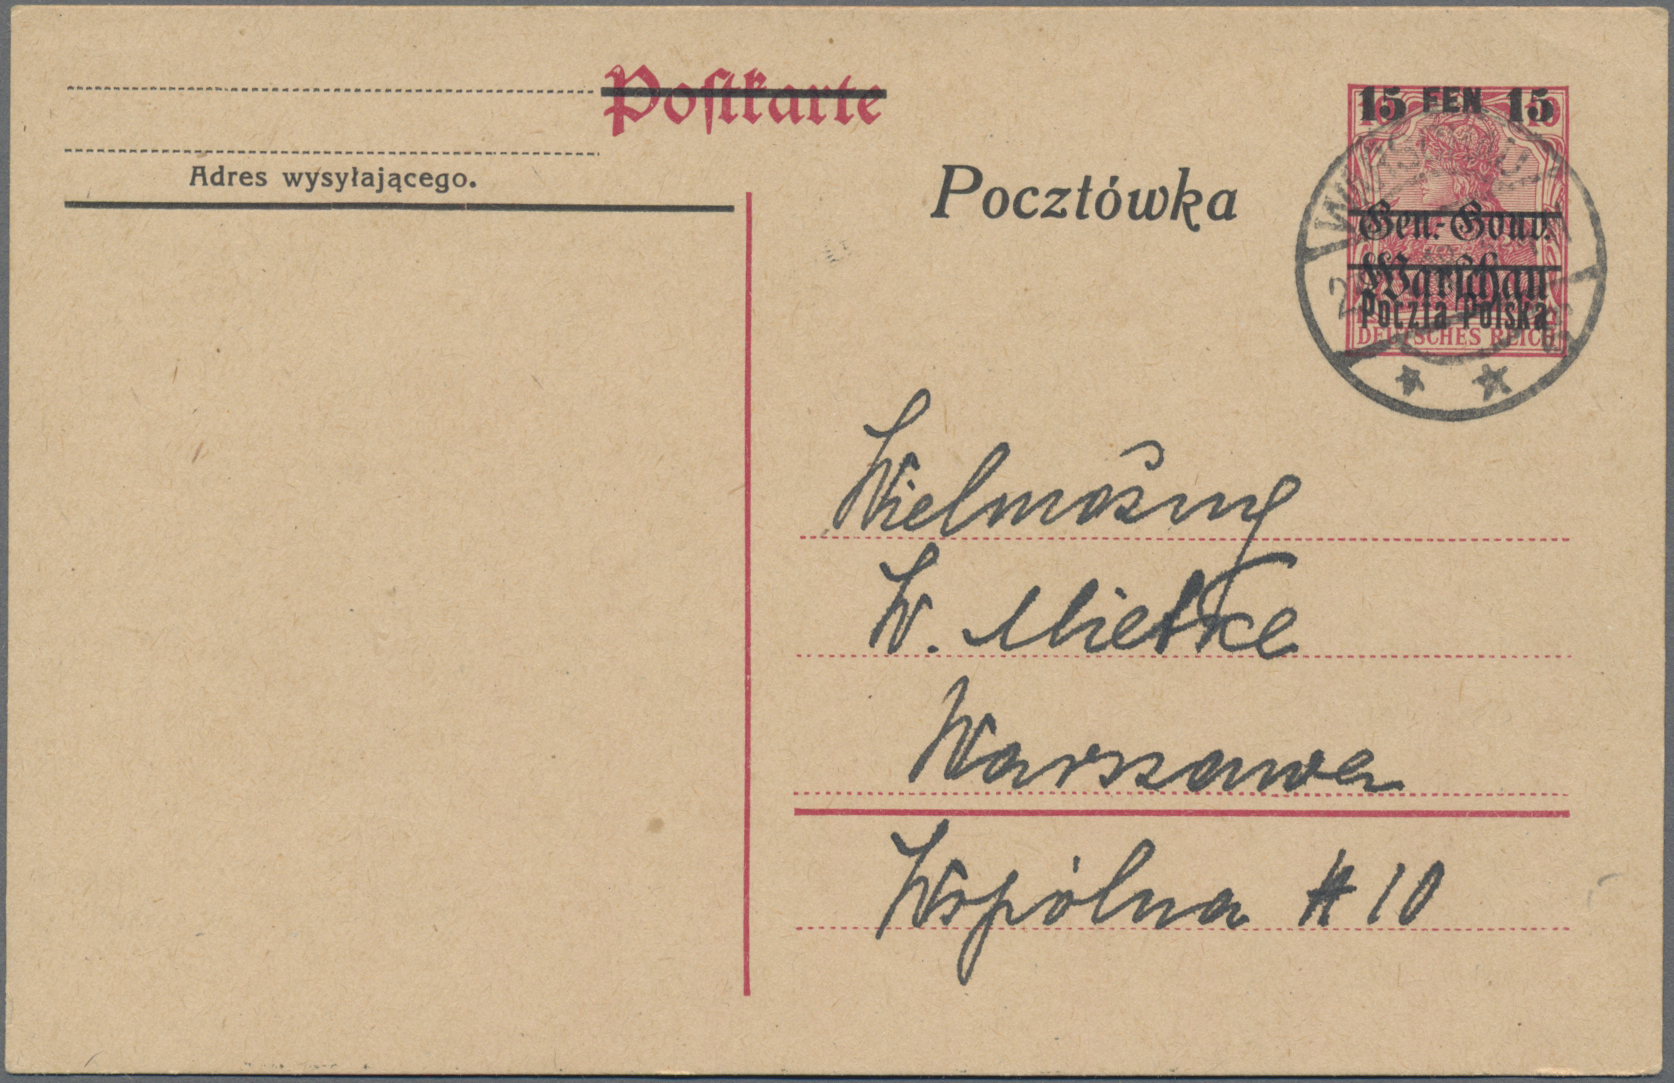 Postkarte
Adres wysyłającego.
Pocztówka
15 FEN. 15
Gen.-Gouv.
Warschau
Poczta Polska
DEUTSCHES REICH
Wielmożny
W. Mietke
Warszawa
Wspólna # 10